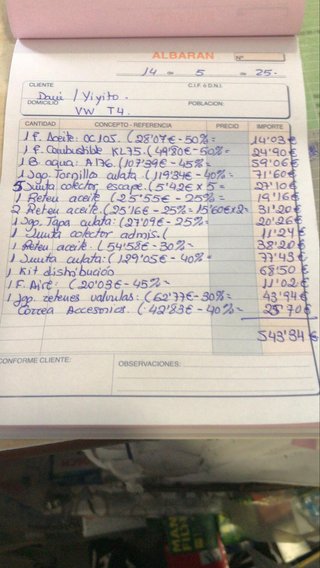 ALBARAN Nº
14 de 5 de 25.
CLIENTE C.I.F. ó D.N.I.
Dani / Yiyito.
DOMICILIO POBLACIÓN:
VW T4.
CANTIDAD CONCEPTO - REFERENCIA PRECIO IMPORTE
1 F. Aceite: OC105. (28'07€-50%= 14'03€
1 F. Combustible KL75. (49'80€-50%= 24'90€
1 B. agua: A176. (107'39€-45%= 59'06€
1 Jgo. Tornillo culata. (119'34€-40%= 71'60€
5 Junta colector escape. (5'42€x5= 27'10€
1 Reten aceite (25'55€-25%= 19'16€
2 Reten aceite. (25'16€-25%=15'60€x2= 31'20€
1 Jgo. Tapa culata: (27'09€-25%= 20'26€
1 Junta colector admis. ( 11'24€
1 Reten aceite. (54'58€-30%= 38'20€
1 Junta culata: (129'05€-40%= 77'43€
1 Kit distribución 68'50€
1 F. Aire: (20'03€-45%= 11'02€
1 Jgo. retenes valvulas: (62'77€-30%= 43'94€
Correa Accesorios. (42'83€-40%= 25'70€
543'34€
CONFORME CLIENTE: OBSERVACIONES: